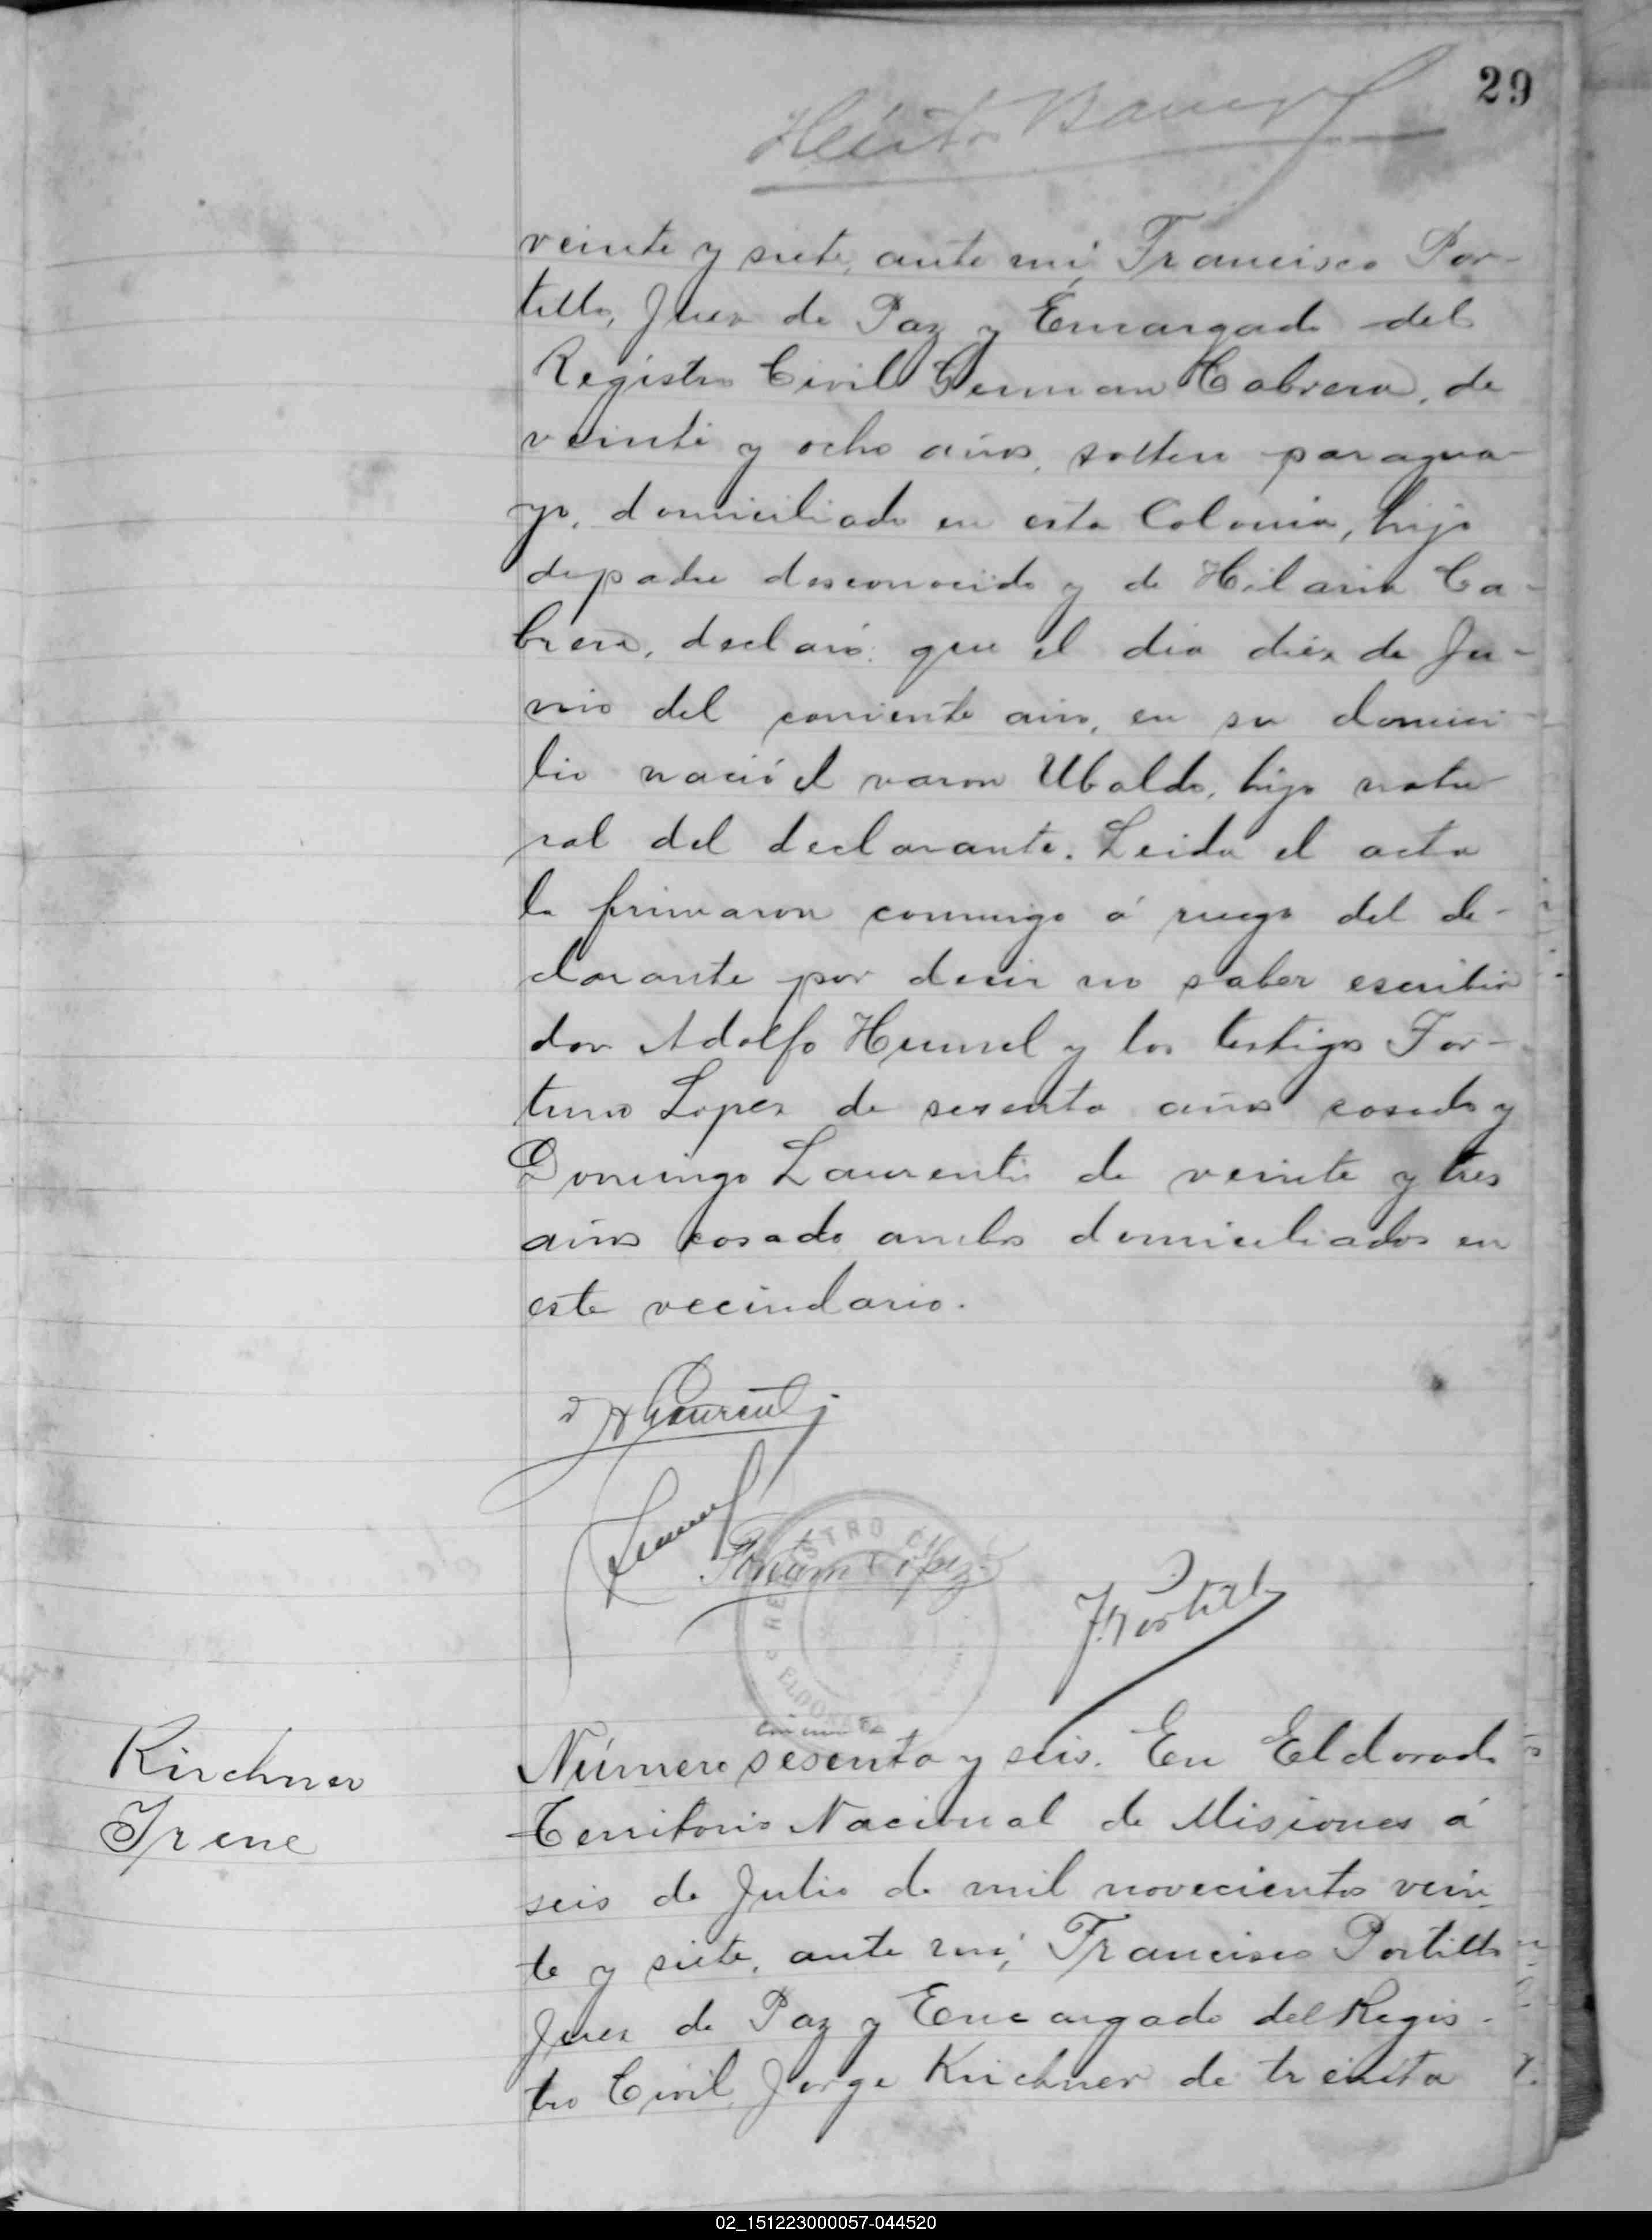 29
veinte y siete, ante mi, Francisco Por-
tillo, Juez de Paz y Encargado del
Registro Civil German Cabrera, de
veinte y ocho años, soltero paragua-
yo, domiciliado en esta Colonia, hijo
de padre desconocido y de Hilaria Ca-
brera, declaró: que el dia diez de Ju-
nio del corriente año, en su domici-
lio nació el varon Ubaldo, hijo natu-
ral del declarante. Leida el acta
la firmaron conmigo á ruego del de-
clarante por decir no saber escribir
don Adolfo Hummel y los testigos For-
tuno Lopez de sesenta años casado y
Domingo Laurenti de veinte y tres
años casado ambos domiciliados en
este vecindario.
Laurenti
López
F. Portillo
REGISTRO CI
ELDORADO
Kirchner
Irene
cincuenta
Número sesenta y seis. En Eldorado
Territorio Nacional de Misiones á
seis de Julio de mil novecientos vein-
te y siete, ante mi, Francisco Portillo
Juez de Paz y Encargado del Regis-
tro Civil, Jorge Kirchner de treinta
02_151223000057-044520